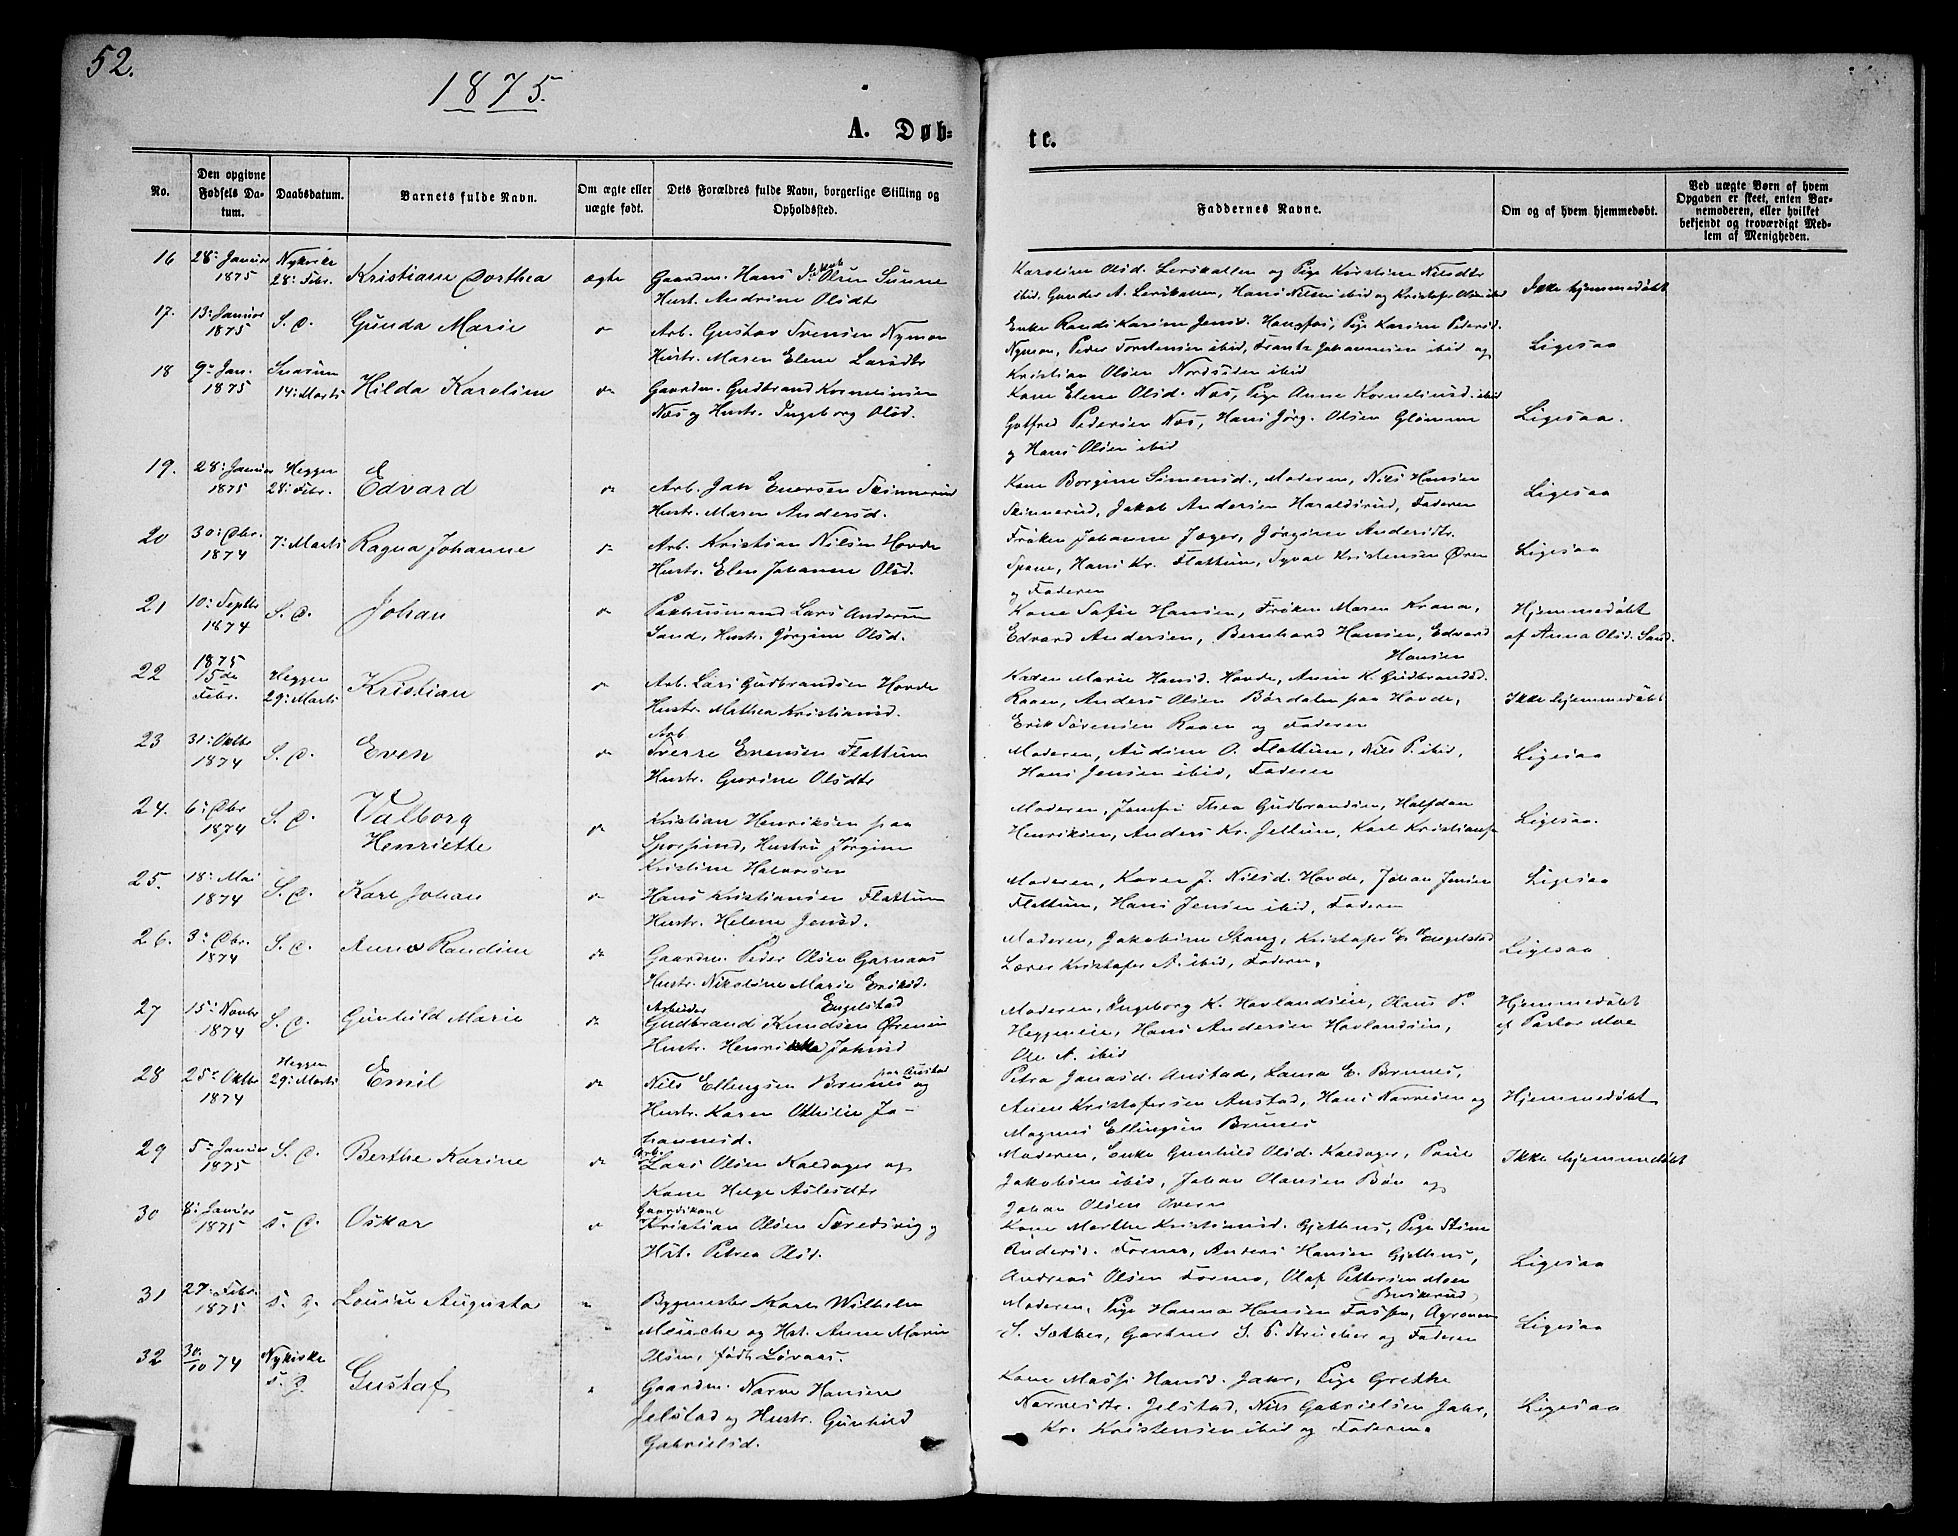 52.
1875.
A. Døb-
te.
No.
Den opgivne Fødsels Datum.
Daabsdatum.
Barnets fulde Navn.
Om ægte eller uægte født.
Dets Forældres fulde Navn, borgerlige Stilling og Opholdssted.
Faddernes Navne.
Om og af hvem hjemmedøbt.
Ved uægte Børn af hvem Opgaven er skeet, enten Barnemoderen, eller hvilket bekjendt og troværdigt Medlem af Menigheden.
16 28: Januar 1875 Nykirke 28: Febr. Kristiane Dorthea ægte Gaardm. Hans Olsen Sunne
Hust. Andrine Olsdt
Karoline Olsd. Lerskallen og Pige Kirstine Nilsdtr
ibid. Gunder A. Lerskallen, Hans Nilsen ibid og Kristofer Olsen ibid
Ikke hjemmedøbt
17. 13: Januar 1875 S. D. Gunda Marie do Arb. Gustav Svensen Nymon
Hustr. Maren Elene Larsdtr
Enke Randi Karine Jensd. Haugfos, Pige Karine Pedersd.
Nymon, Peder Torstensen ibid, Frants Johannesen ibid og
Kristian Olsen Nordsiden ibid
Ligesaa
18 9: Jan. 1875 Snarum 14: Marts Hilda Karoline do Gaardm. Gudbrand Korneliussen
Næs og Hustr. Ingeborg Olsd.
Kone Elene Olsd. Næs, Pige Anne Korneliusd. ibid
Gotfred Pedersen Næs, Hans Jørg. Olsen Glømme
og Hans Olsen ibid
Ligesaa.
19. 28: Januar 1875 Heggen 28: Febr. Edvard do Arb. Jah Enersen Skinnerud
Hustr. Maren Andersd.
Kone Borgine Simensd., Moderen, Nils Hansen
Skinnerud, Jakob Andersen Haraldsrud, Faderen
Ligesaa
20 30: Dbr. 1874 7: Marts Ragna Johanne do Arb. Kristian Nilsen Hovde
Hustr. Elen Johanne Olsd.
Frøken Johanne Jæger, Jørgine Andersdtr.
Spone, Hans Kr. Flattum, Syval Kristensen Øren
og Faderen
Ligesaa
21 10: Septbr 1874 S. D. Johan do Pakhusmand Lars Andersen
Sand, Hustr. Jørgine Olsd.
Kone Sofie Hansen, Frøken Maren Krona,
Edvard Andersen, Bernhard Hansen, Edvard
Hansen
Hjemmedøbt
af Anna Olsd. Sand.
22 1875 15de Febr. Heggen 29: Marts Kristian do Arb. Lars Gudbrandsen Hovde
Hustr. Mathea Kristiansd.
Karen Marie Hansd. Hovde, Anne K. Gudbrandsd.
Raaen, Anders Olsen Børdalen paa Hovde,
Erik Sørensen Raaen og Faderen
Ikke hjemmedøbt
23 31: Oktbr 1874 S. D. Even do Arb
Sverre Evensen Flattum
Hustr. Gurine Olsdtr
Moderen, Audine O. Flattum, Nils P. ibid,
Hans Jensen ibid, Faderen
Ligesaa
24. 6: Dbr 1874 S. D. Valborg
Henriette
do Kristian Henriksen paa
Hustru Jørgine
Kristine Halvorsen
Moderen, Jomfru Thea Gudbrandsen, Halfdan
Henriksen, Anders Kr. Jellum, Karl Kristiansen
Ligesaa.
25. 18: Mai 1874 S. D. Karl Johan do Hans Kristiansen Flattum
Hustr. Helene Jensd.
Moderen, Karen J. Nilsd. Hovde, Johan Jensen
Flattum, Hans Jensen ibid, Faderen
Ligesaa
26. 3: Dbr. 1874 S. D. Anna Randine do Gaardm. Peder Olsen Garnaas
Hustr. Nikoline Marie Eriksd.
Engelstad
Moderen, Jakobine Skang, Kristofer E. Engelstad
Lærer Kristofer A. ibid, Faderen,
Ligesaa
27 15: Novbr 1874 S. D. Gunhild Marie do Arbeider
Gudbrand Knudsen Ørenen
Hustr. Henrikke Johnsd
Moderen, Ingeborg K. Hovlandseie, Olaus P.
Heggeneie, Hans Andersen Hovlandseie,
Ole A. ibid
Hjemmedøbt
af Pastor Moe
28 25: Oktbr 1874 Heggen 29: Marts Emil do Nils Ellingsen Brunes paa Austad og
Hustr. Karen Othilie Jo-
hannesd.
Petra Jonasd. Austad, Laura E. Brunes,
Anen Kristofersen Austad, Hans Narvesen og
Magnus Ellingsen Brunes
Hjemmedøbt
29 5: Januar 1875 S. D. Berthe Karine do Arb.
Lars Olsen Kaldager og
Kone Helge Aslesdtr
Moderen, Enke Gunhild Olsd. Kaldager, Paul
Jakobsen ibid, Johan Olausen Bøn og
Johan Olsen Overn
Ikke hjemmedøbt
30 8: Januar 1875 S. D. Oskar do
Kristian Olsen Svredsvig og
Hst. Petrea Olsd.
Kone Marthe Kristiansd. Gjethus, Pige Stine
Andersd. Formo, Anders Hansen Gjethus,
Andreas Olsen Formo, Olaf Pettersen Moen
Ligesaa
31 27: Febr. 1875 S. D. Louise Augusta " Bygmester Karl Wilhelm
Meusche og Hst. Anne Marie
Olsen, født Løvaas.
(Buskerud)
Moderen, Pige Hanna Hansen Fossen, Agronom
S. Sather, Gartner S. P. Strucher og Faderen
Ligesaa
32 30/10 74 Nykirke S. D. Gustaf " Gaardm. Narve Hansen
Jelstad og Hustr. Gunhild
Gabrielsd.
Kone Massi Hansd. Jahr, Pige Grethe
Narvesdtr. Jelstad, Nils Gabrielsen Jahr,
Kr. Kristensen ibid og Faderen.
Ligesaa